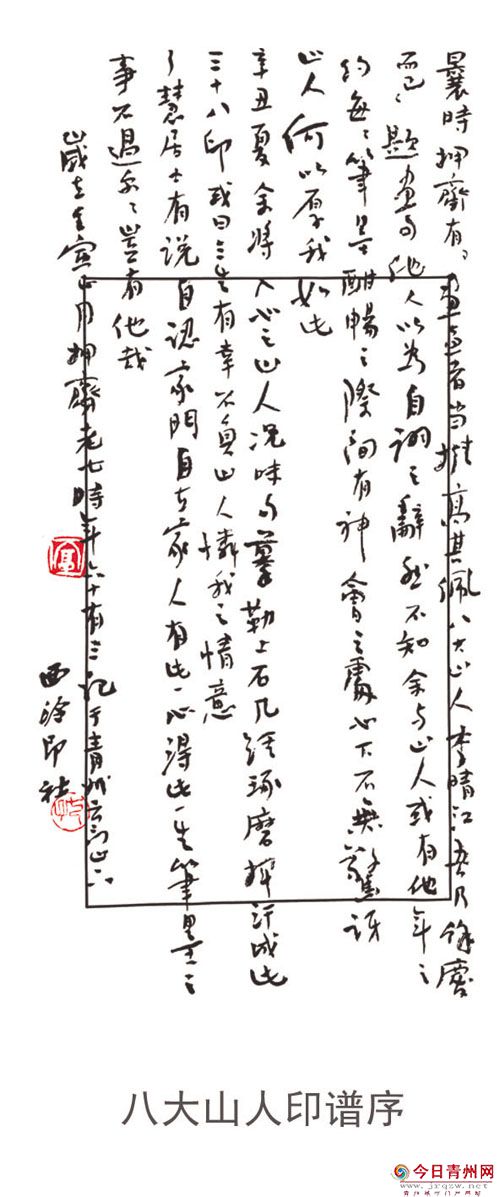 曩時押齋有畫者當推高其佩八大山人李晴江吾乃磨
而已題畫他人以為自詡之辭然不知余与山人或有他年之
約每每筆墨酣暢之際間有神會之處心下不無驚訝
山人何以厚我如此
辛丑夏余將心之山人況味摹勒上石几經琢磨揮汗成此
三十八印或曰三生有幸不負山人憐我之情意
了慧居士有說自認家門自家人有此一心得此一生筆墨之
事不過豈有他哉
歲在押齋老七時年六十有三記于青州云门山下
西泠印社
八大山人印谱序
今日青州网
www.jrqzw.net